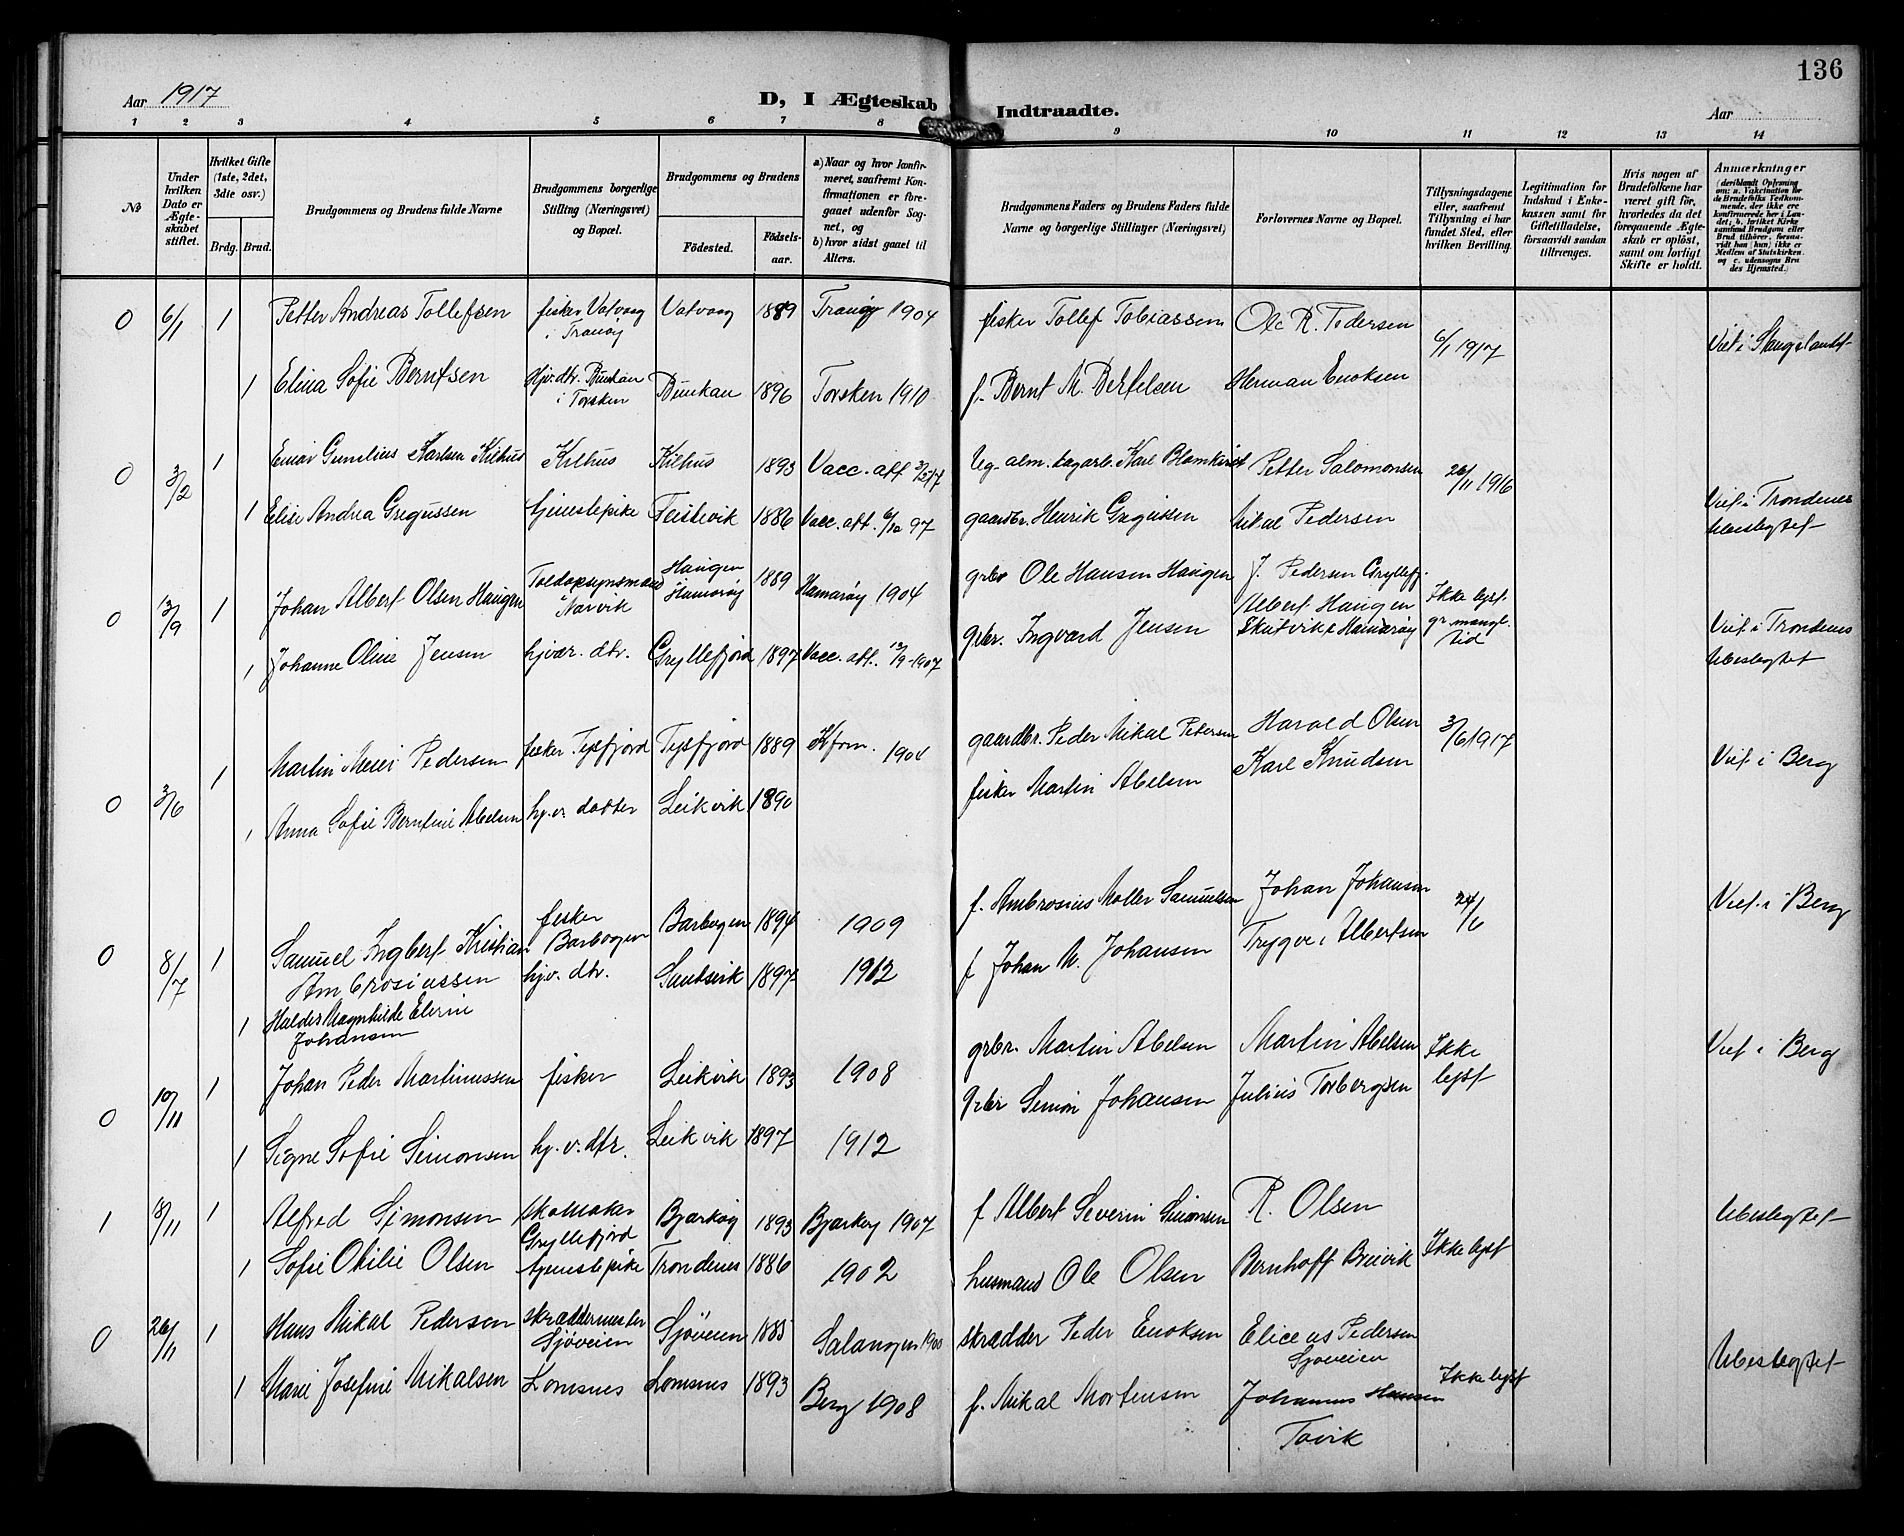 136
Aar 1917
D, I Ægteskab Indtraadte.
Aar
1 2 3 4 5 6 7 8 9 10 11 12 13 14
№
Under hvilken Dato er Ægteskabet stiftet.
Hvilket Gifte (1ste, 2det, 3die osv.)
Brdg. Brud.
Brudgommens og Brudens fulde Navne
Brudgommens borgerlige Stilling (Næringsvei) og Bopæl.
Brudgommens og Brudens
Födested. Födselsaar.
a) Naar og hvor konfirmeret, saafremt Konfirmationen er foregaaet udenfor Sognet, og
b) hvor sidst gaaet til Alters.
Brudgommens Faders og Brudens Faders fulde Navne og borgerlige Stillinger (Næringsvei)
Forlovernes Navne og Bopæl.
Tillysningsdagene eller, saafremt Tillysning ei har fundet Sted, efter hvilken Bevilling.
Legitimation for Indskud i Enkekassen samt for Giftetilladelse, forsaavidt saadan tiltrænges.
Hvis nogen af Brudefolkene har været gift för, hvorledes da det foregaaende Ægteskab er oplöst, samt om lovligt Skifte er holdt.
Anmærkninger
(deriblandt Oplysning om: a. Vakcination for de Brudefolks Vedkommende, der ikke ere konfirmerede her i Landet; b. hvilket Kirkesamfund Brudgom eller Brud tilhörer, forsaavidt han (hun) ikke er Medlem af Statskirken, og c. udensogns Brudes Hjemsted.
0 6/1 1 Petter Andreas Tollefsen fisker Vatvaag i Tranöy Vatvaag 1889 Tranöy 1904 fisker Tollef Tobiassen Ole R. Pedersen 6/1 1917 Viet i Stangelandet
1 Elina Sofie Berntsen Hjv. dtr. Bunkan i Torsken Bunkan 1896 Torsken 1910 f. Bernt M. Bertelsen Herman Enoksen
0 3/2 1 Einar Gunelius Karlsen Kilhus Kilhus Kilhus 1893 Vacc. att 3/2 17 Karl Blomkvist Petter Salomonsen 26/11 1916 Viet i Trondenes
1 Elise Andrea Gregussen tjenestepike Feistevik 1886 Vacc. att. 6/10 97 gaardbr. Henrik Gregussen Mikal Pedersen Ubeslegtet
0 13/9 1 Johan Albert Olsen Haugen Toldopsynsmand Narvik Haugen Hamaröy 1889 Hamaröy 1904 grbr Ole Hansen Haugen J. Pedersen Gryllefj. Ikke lyst gr. mangl. tid Viet i Trondenes
1 Johanne Oline Jensen hjvær. dtr. Gryllefjord 1897 Vacc. att. 13/9-1907 grbr. Ingvard Jensen Albert Haugen Skutvik Hamaröy Ubeslegtet
0 3/6 1 Martin Meier Pedersen fisker Tysfjord Tysfjord 1889 Kfrm. 1904 gaardbr. Peder Mikal Petersen Harald Olsen 3/6 1917 Viet i Berg
1 Anna Sofie Berntine Abelsen hj.v. datter Leikvik 1890 fisker Martin Abelsen Karl Knudsen
0 8/7 1 Samuel Ingbert Kristian Ambrosiussen fisker Barbogen Barbogen 1894 1909 f. Ambrosius Moller Samuelsen Johan Johansen 24/6 Viet i Berg
1 Halder Magnhilde Elerine Johansen hjv. dtr. Sandsvik 1897 1912 f Johan M. Johansen Trygve Albertsen
0 10/11 1 Johan Peder Martinussen fisker Leikvik 1893 1908 grbr. Martin Abelsen Martin Abelsen Ikke lyst Viet i Berg
1 Signe Sofie Simonsen hj. v. dtr. Leikvik 1897 1912 grbr Simon Johansen Julius Torbergsen
1 18/11 1 Alfred Simonsen skomaker Gryllefjord Bjarköy 1893 Bjarkoy 1907 f Albert Severin Simonsen R. Olsen Ikke lyst Ubeslegtet
1 Sofie Otilie Olsen tjenestepike Trondenes 1886 1902 husmand Ole Olsen Bernhoff Breivik
0 26/11 1 Hans Mikal Pedersen skræddermester Sjöveien Sjöveien 1885 Salangen 1900 skrædder Peder Enoksen Eliceus Pedersen Sjoveien Ikke lyst Ubeslegtet
1 Marie Josefine Mikalsen Lomsnes Lomsnes 1893 Berg 1908 f. Mikal Mortensen Johannes Hansen Tovik